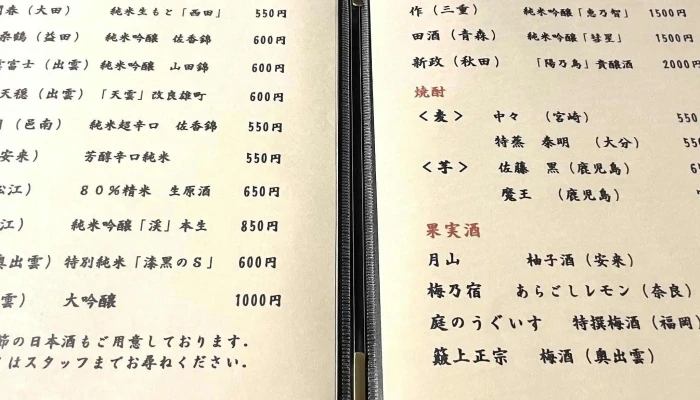 開春（大田） 純米生もと「西田」 550円
桑鶴（益田） 純米吟醸 佐香錦 600円
富士（出雲） 純米吟醸 山田錦 600円
天穏（出雲） 「天雲」改良雄町 600円
（邑南） 純米超辛口 佐香錦 550円
安来） 芳醇辛口純米 550円
松江） 80％精米 生原酒 650円
江） 純米吟醸「渓」本生 850円
奥出雲） 特別純米「漆黒のS」 600円
雲） 大吟醸 1000円
節の日本酒もご用意しております．
はスタッフまでお尋ねください．
作（三重） 純米吟醸「恵乃智」 1500円
田酒（青森） 純米吟醸「彗星」 1500円
新政（秋田） 「陽乃鳥」貴醸酒 2000円
焼酎
＜麦＞ 中々 （宮崎） 550
特蒸 泰明 （大分） 55
＜芋＞ 佐藤 黒（鹿児島）
魔王 （鹿児島）
果実酒
月山 柚子酒（安来）
梅乃宿 あらごしレモン（奈良）
庭のうぐいす 特撰梅酒（福岡）
簸上正宗 梅酒（奥出雲）